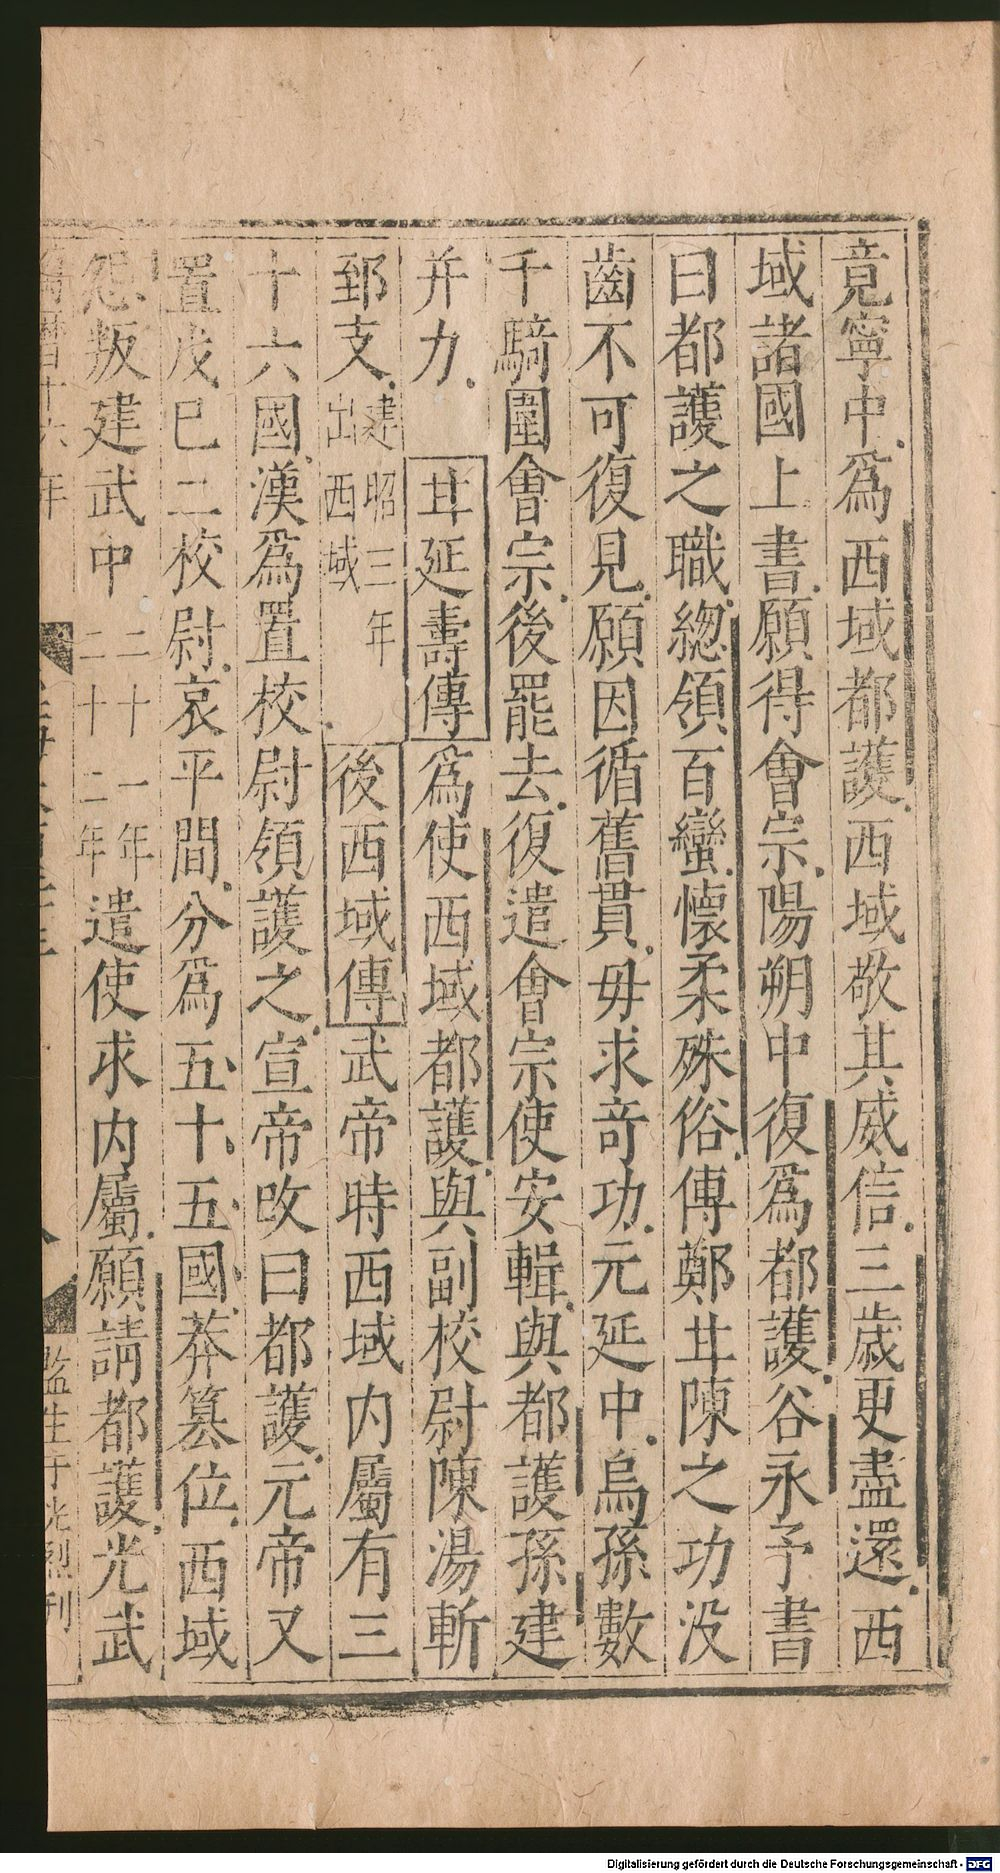 竟寧中爲西域都護西域敬其威信三歲更盡還西
域諸國上書願得會宗陽朔中復爲都護谷永予書
曰都護之職總領百蠻懷柔殊俗傳鄭甘陳之功没
齒不可復見願因循舊貫毋求奇功元延中烏孫數
千騎圍會宗後罷去復遣會宗使安輯與都護孫建
并力 甘延壽傳爲使西域都護與副校尉陳湯斬
郅支建昭三年出西域 後西域傳武帝時西域内屬有三
十六國漢爲置校尉領護之宣帝改曰都護元帝又
置戊巳二校尉哀平間分爲五十五國莽篡位西域
怨叛建武中二十一年二十二年遣使求内屬願請都護光武
萬曆十六年
監生于光烈刊
Digitalisierung gefördert durch die Deutsche Forschungsgemeinschaft - DFG